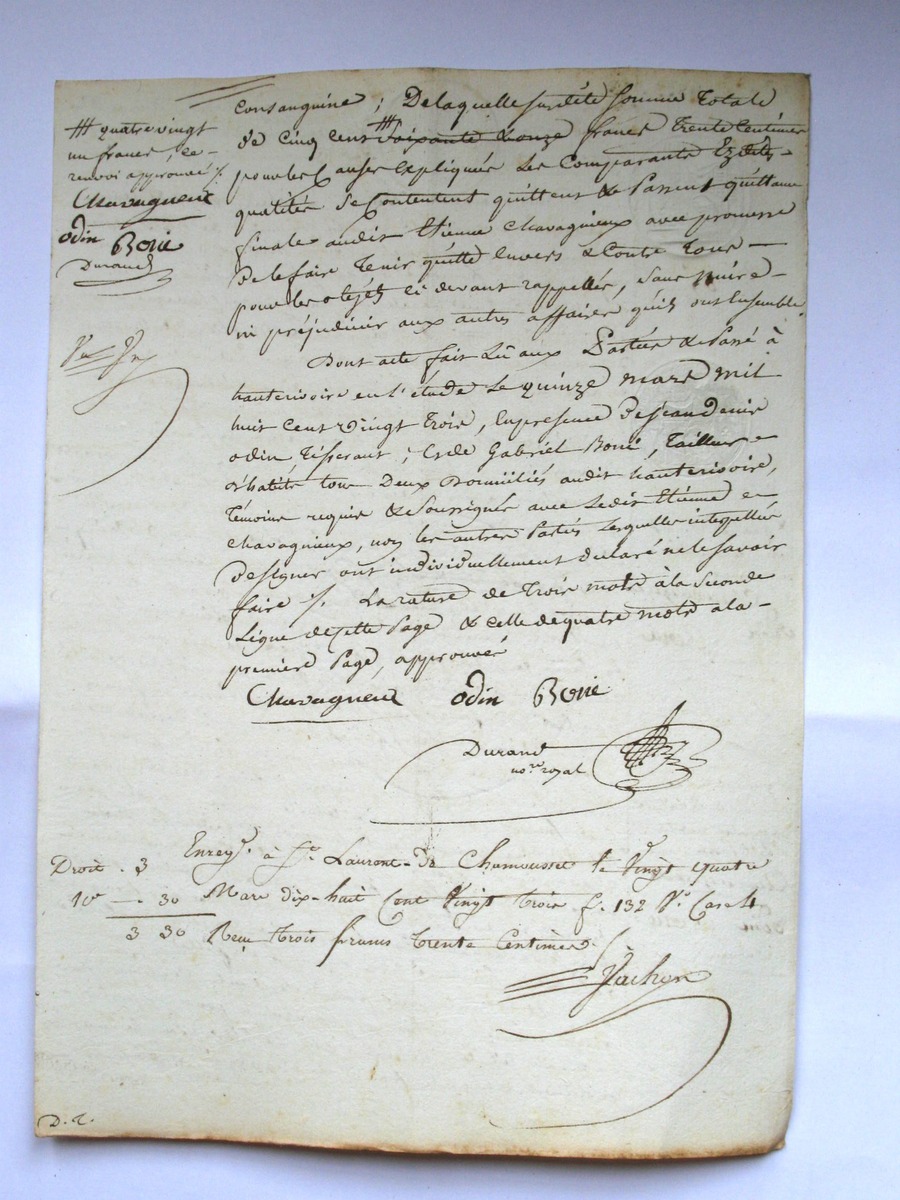 ₶ quatre vingt
un francs, ce
renvoi approuvé ./.
Chavagneux
odin Borie
Durand
consanguine ; De laquelle susdite somme Totale
de cinq cent ₶ soixante & onze francs Trente Centimes
pour les Causes Expliquées Les Comparants Ezdites
qualités Se Contentent quittent & Passent quittance
finale audit Etienne Chavagnieux avec promesse
De le faire Tenir quitte Envers & Contre Tous —
pour les objets ci devant rappellés, Sans nuire —
ni préjudicier aux autres affaires qu'ils ont Ensemble
Dont acte fait Lû aux Parties & Passé à
hauterivoire en l'étude Le quinze mars mil
huit Cent Vingt Trois, En presence De jean Denis
odin, Tisserant ; Et de Gabriel Borié, Tailleur
d'habits tous Deux Domiciliés audit hauterivoire,
Témoins requis & Soussignés avec Ledit Etienne
Chavagnieux, non les autres Parties Lesquelles interpellées
De signer ont individuellement déclaré ne le savoir
faire ./. La rature de Trois mots à la Seconde
Ligne de cette Page & celle de quatre mots a la —
premiere Page, approuvés
Chavagneux odin Borie
Durand
no.re royal
Enreg.é à St. Laurent-de Chamousset le Vingt quatre
Mars dix-huit Cent Vingt Trois f. 132 Vo. Case 4
Reçu Trois francs trente Centimes
Droit . 3
10e —. 30
3 30
Vachon
D. R.